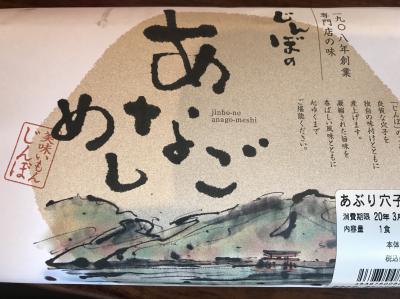 一九〇八年創業
専門店の味
じんぼの
あなごめし
jinbo-no
anago-meshi
「じんぼ」の
良質な穴子を
独自の味付けとともに
炊上げます。
凝縮された旨味を
香ばしい風味とともに
心ゆくまで
ご堪能ください。
美味いもん
じんぼ
あぶり穴子
消費期限 20年 3月
内容量 1食
本体
税込